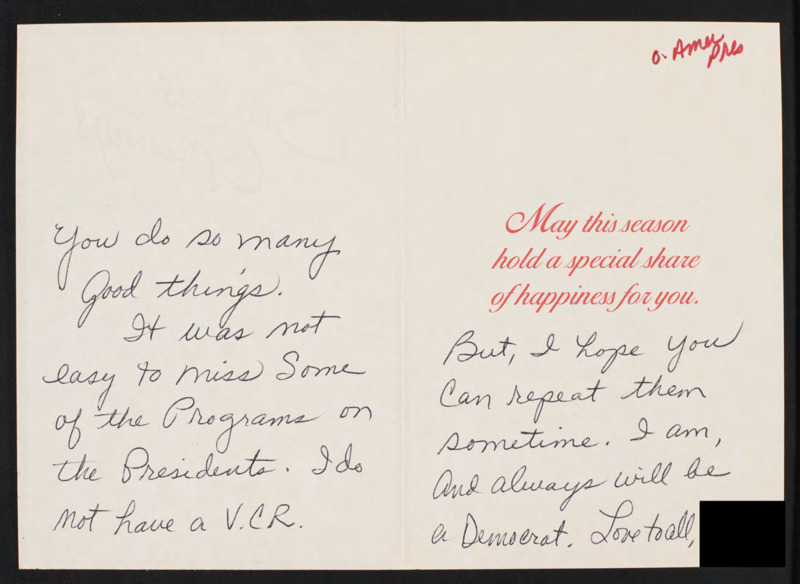 You do so many
Good things.
It was not
easy to miss Some
of the Programs on
the Presidents. I do
not have a V.C.R.
o. Amer
Pres
May this season
hold a special share
of happiness for you.
But, I hope you
Can repeat them
sometime. I am,
And always will be
a Democrat. Love to all,